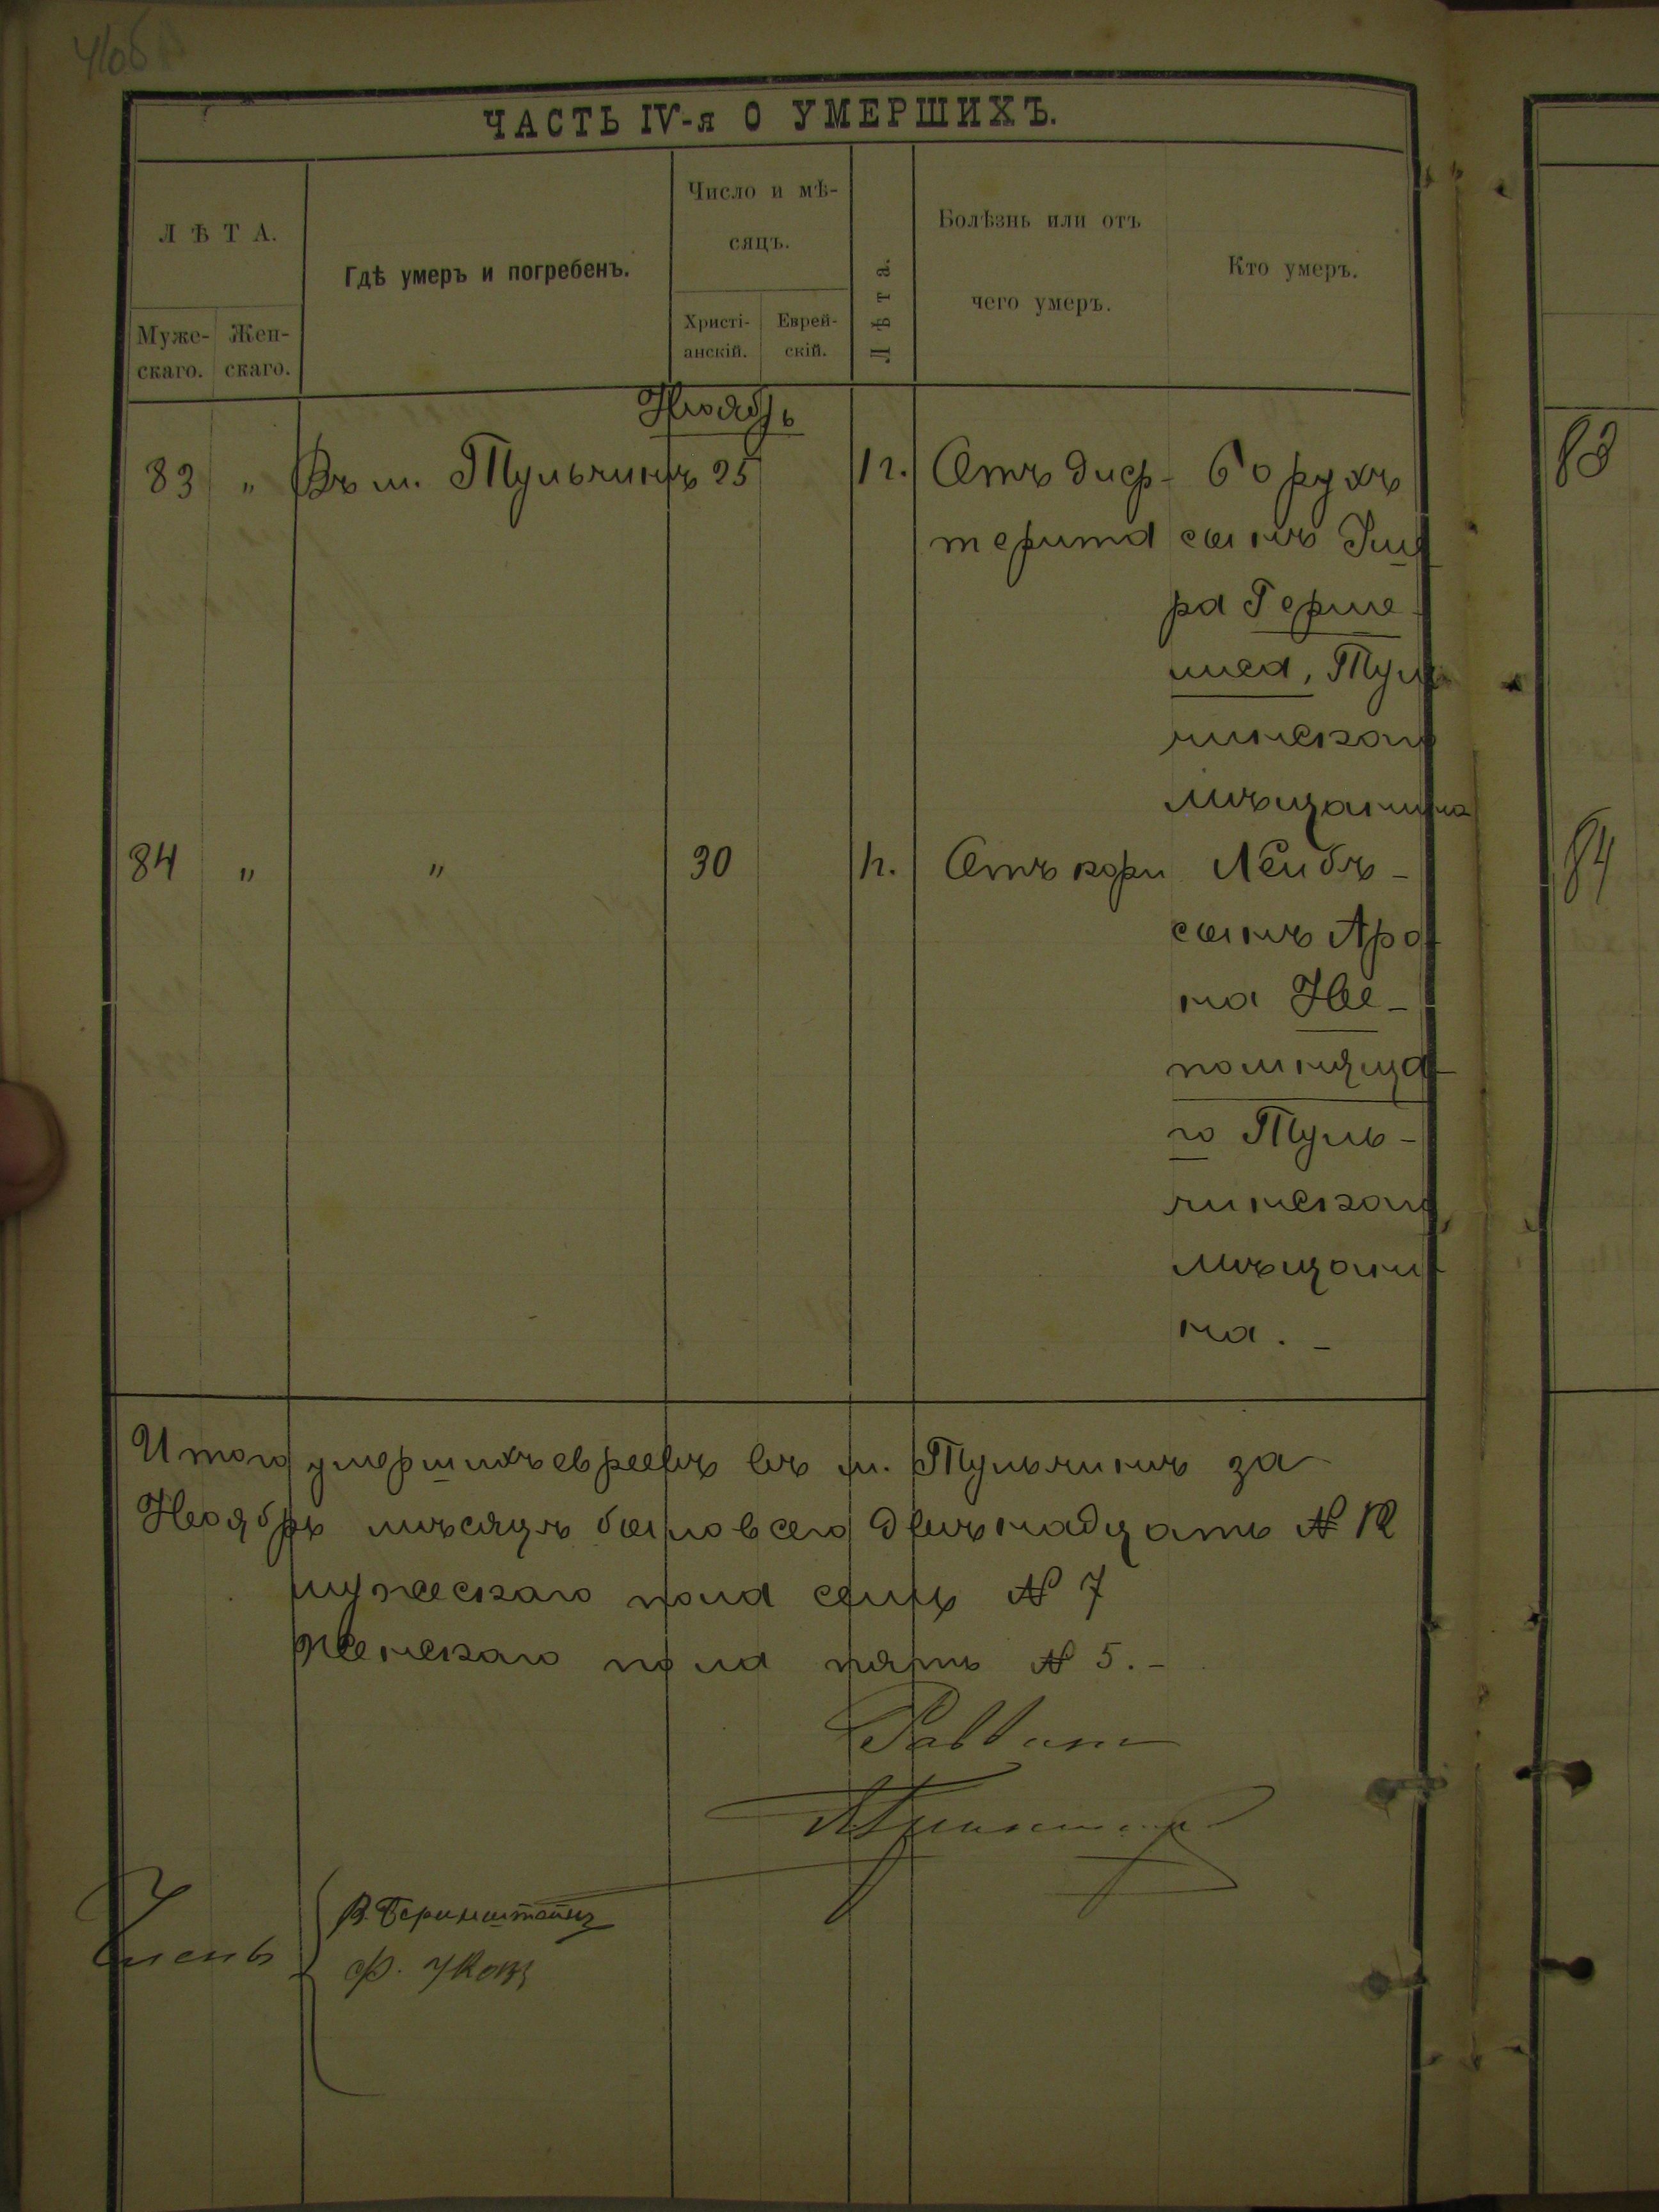 ЧАСТЬ IV-я О УМЕРШИХЪ.
ЛѢТА.
Муже-
скаго.
Жен-
скаго.
Гдѣ умеръ и погребенъ.
Число и мѣ-
сяцъ.
Христі-
анскій.
Еврей-
скій.
Лѣта.
Болѣзнь или отъ
чего умеръ.
Кто умеръ.
Ноябрь
83 " Въ м. Тульчинѣ 25 1 г. Отъ диф- Борухъ
терита сынъ
ра Герше
Туль
чинскаго
мѣщанина
84 " " 30 1 г. Отъ кори Лейбъ-
сынъ Аро-
на Не-
помняща-
го Туль-
чинскаго
мѣщани-
на.-
Итого умершихъ евреевъ въ м. Тульчинѣ за
Ноябрь мѣсяцъ было всего двѣнадцать № 12
мужескаго пола семь № 7
женскаго пола пять № 5.-
Раввин
В. Беринштейнъ
Ф.
83
84